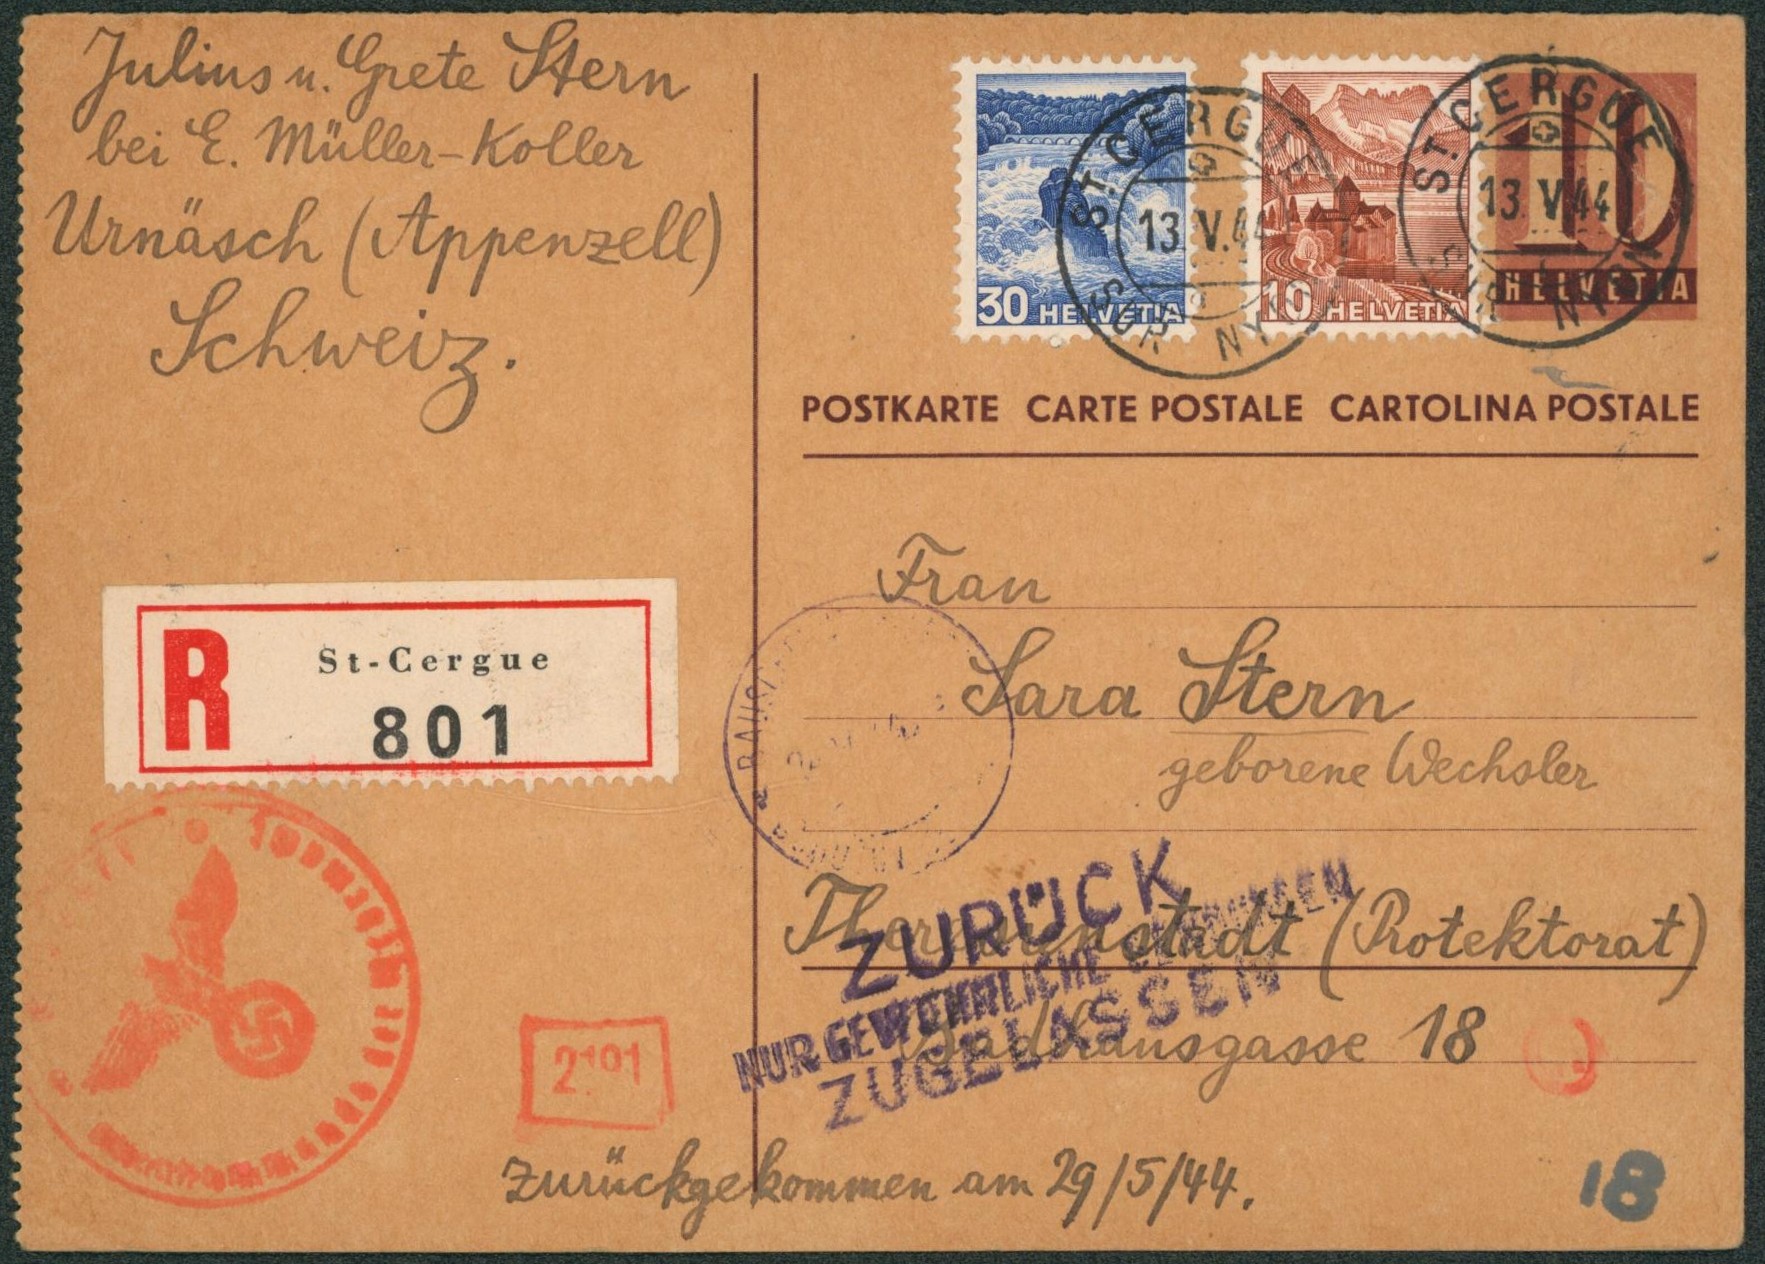 Julius u. Grete Stern
bei E. Müller-Koller
Urnäsch (Appenzell)
Schweiz.
30 HELVETIA
10 HELVETIA
10
HELVETIA
ST. CERGUE
13.V.44
SUR NYON
ST. CERGUE
13.V.44
SUR NYON
POSTKARTE CARTE POSTALE CARTOLINA POSTALE
R
St-Cergue
801
Frau
Sara Stern
geborene Wechsler
Theresienstadt (Protektorat)
Badhausgasse 18
ZURÜCK
NUR GEWÖHNLICHE SENDUNGEN
ZUGELASSEN
2191
Zurückgekommen am 29/5/44.
18